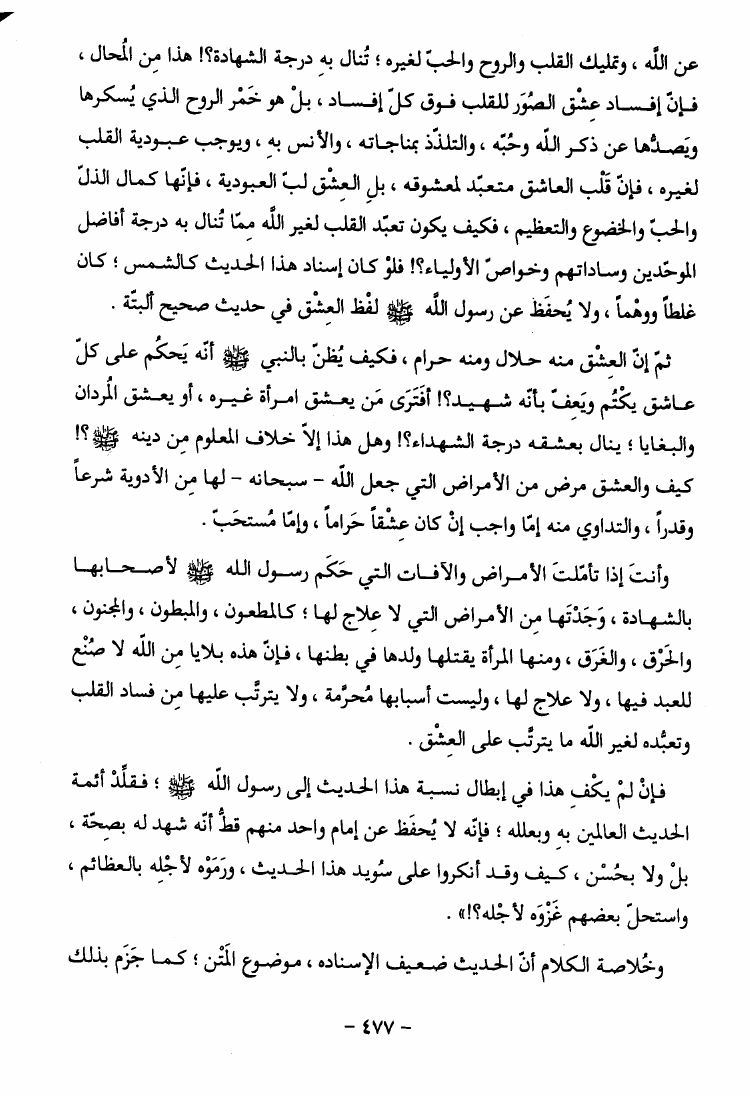 عن اللَّه ، وتمليك القلب والروح والحبّ لغيره ؛ تُنال به درجة الشهادة؟! هذا مِن المُحال ،
فـإنّ إفـسـاد عِشْق الصُوَر للقلب فـوق كلّ إفـسـاد ، بلْ هو خَمْر الروح الـذي يُسكرها
ويَصـدُّها عن ذكـر اللَّه وحُبّه ، والتلذّذ بمناجـاته ، والأنس به ، ويوجب عبـودية القلب
لغيره ، فـإنّ قَلْب العـاشق متـعبّد لمعشوقه ، بلِ العِشْق لبّ العبودية ، فـإنّها كمال الذلّ
والحبّ والخضوع والتعظيم ، فكيف يكون تعبّد القلب لغير اللَّه ممّا تُنال به درجة أفاضل
الموحّدين وساداتهم وخـواصّ الأولياء؟! فلوْ كـان إسناد هذا الحديث كـالشـمس ؛ كان
غلطاً ووهْماً ، ولا يُحفَظ عن رسول اللَّه ﷺ لفْظ العِشْق في حديث صحيح ألبتّة .
ثمّ إنّ العِشْق منه حـلال ومنه حـرام ، فكيف يُظنّ بالنبي ﷺ أنّه يَحكُم على كلّ
عـاشق يكْتُم ويَعِفّ بأنّه شـهـيـد؟! أفَتَرَى مَن يعـشق امـرأة غيـره ، أو يعـشق المُردان
والبـغايا ؛ ينال بعشقـه درجة الشـهداء؟! وهل هذا إلاّ خـلاف المعلوم مِن دينه ﷺ؟!
كيف والعشق مرض من الأمراض التي جعل اللَّه - سبحانه - لها مِن الأدوية شرعاً
وقدراً ، والتداوي منه إمّا واجب إنْ كان عِشْقاً حَراماً ، وإمّا مُستحَبّ .
وأنتَ إذا تأمّلتَ الأمـراض والآفـات التي حَكَم رسـول الله ﷺ لأصـحـابهـا
بالشهـادة ، وَجَدْتَهـا مِن الأمراض التي لا عِلاج لها ؛ كـالمطعـون ، والمبطون ، والمجنون ،
والحَرْق ، والغَرَق ، ومنهـا المرأة يقتلهـا ولدها في بطنها ، فـإنّ هذه بـلايا مِن اللَّه لا صُنْع
للعبد فيها ، ولا علاج لها ، وليست أسبابها مُحرَّمة ، ولا يترتَّب عليها مِن فساد القلب
وتعبُّده لغير اللَّه ما يترتَّب على العِشْق .
فـإنْ لمْ يكْفِ هذا في إبطال نسـبة هذا الحـديث إلى رسـول اللَّه ﷺ ؛ فـقلِّدْ أئمـة
الحديث العالمين به وبعلله ؛ فإنّه لا يُحفَظ عن إمام واحد منهم قطُّ أنّه شهد له بصِحّة ،
بلْ ولا بحُسْن ، كـيف وقـد أنكروا على سُويد هذا الحـديث ، ورَمَوْه لأجْله بالعظائم ،
واستحلّ بعضهم غَزْوَه لأجْله؟!» .
وخُلاصـة الكلام أنّ الحديث ضـعيف الإسناده ، مـوضوع المَتْن ؛ كـمـا جَزَم بذلك
- ٤٧٧ -